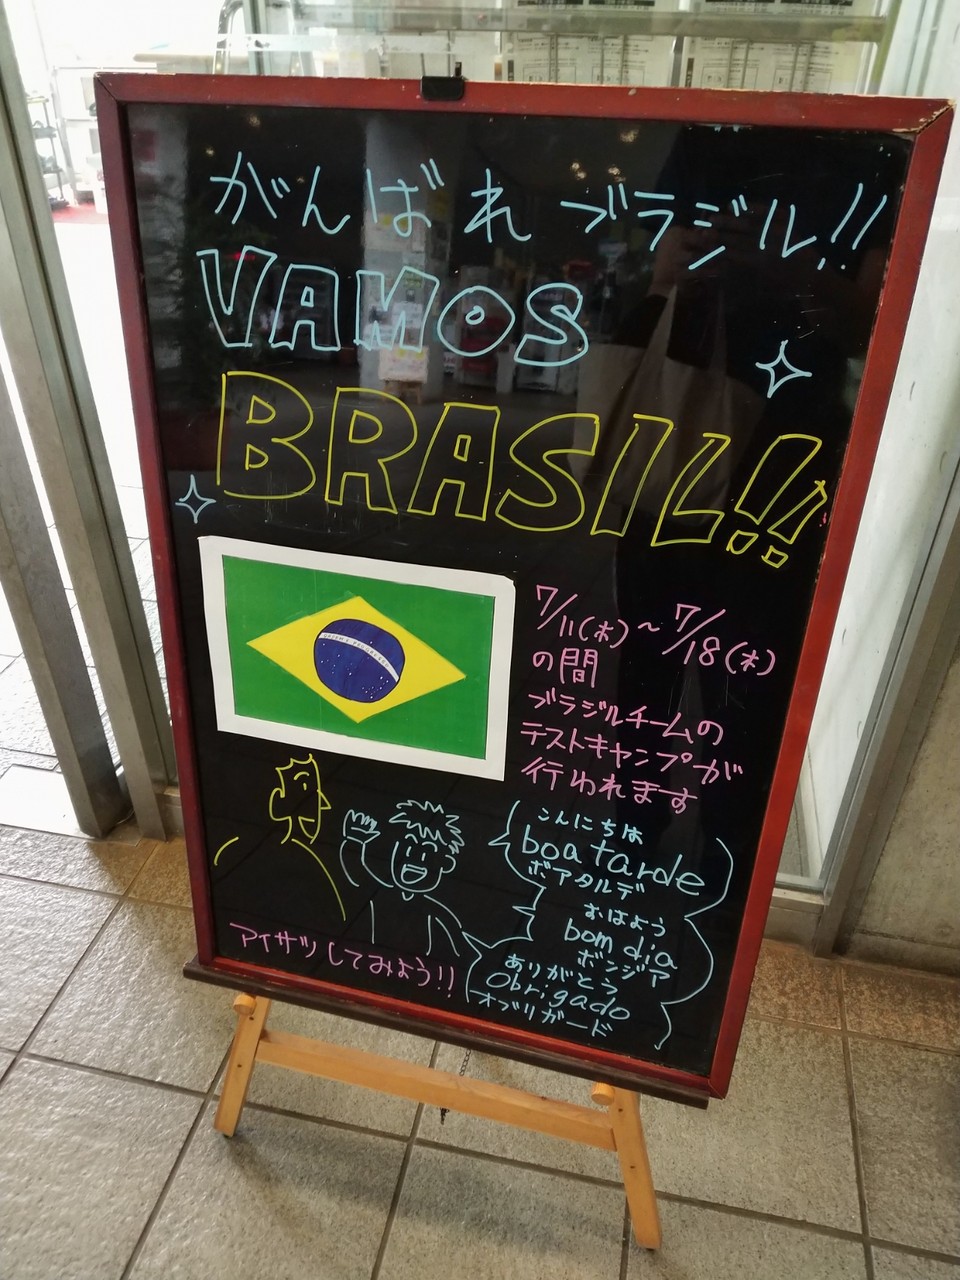 がんばれ ブラジル!!
VAMOS
BRASIL!!
7/11(木)~7/18(木)
の間
ブラジルチームの
テストキャンプが
行われます
こんにちは
boa tarde
ボアタルデ
おはよう
bom dia
ボンジア
ありがとう
Obrigado
オブリガード
アイサツしてみよう!!